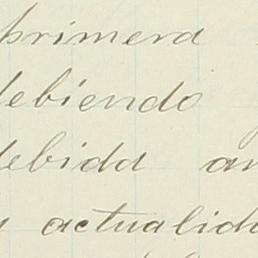 primera
debiendo
debida an
actualida